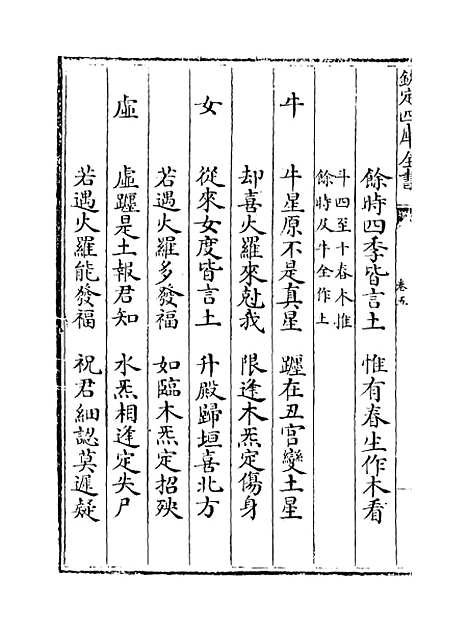 欽定四庫全書
卷五
餘時四季皆言土　惟有春生作木看
斗四至十春木推
餘時及牛全作土
牛
牛星原不是真星　躔在丑宮變土星
却喜火羅來尅我　限逢木炁定傷身
女
從來女度皆言土　升殿歸垣喜北方
若遇火羅多發福　如臨木炁定招殃
虛
虛躔是土報君知　水炁相逢定失尸
若遇火羅能發福　祝君細認莫遲疑